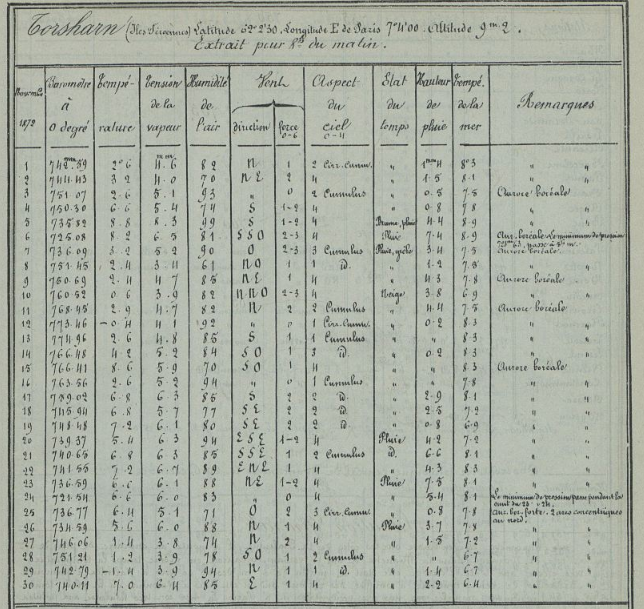 Torsharn (Iles Féroennes) Latitude 62° 2'30, Longitude E de Paris 7° 4'00. Altitude 9m.2.
Extrait pour 8h du matin.
1872 Baromètre à 0 degré Tempé-rature Tension de la vapeur Humidité de l'air Vent direction force 0-6 Aspect du ciel 0-4 Etat du temps Hauteur de pluie Tempé. de la mer Remarques
1 742.59 2.6 4.6 82 N 1 2 Cirr. Cumu. " 1.4 8.3 " "
2 744.43 3.2 4.0 70 NE 2 4 " 1.5 8.1 " "
3 751.07 2.6 5.1 93 " 0 2 Cumulus " 0.5 7.5 Aurore boréale
4 750.30 6.6 5.4 74 S 1-2 4 " 0.8 7.8 " "
5 735.82 8.8 8.3 99 S 1-2 4 Brume, pluie 4.4 8.9 " "
6 725.08 8.2 6.5 81 SSO 2-3 4 Pluie 7.4 8.9 Aur. boréale. Le minimum de pression
7 736.09 3.2 5.2 90 O 2-3 3 Cumulus Pluie, grêle 3.4 7.5 Aurore boréale.
8 751.45 2.4 3.4 61 NO 1 1 id. " 1.2 7.5 " "
9 760.69 2.4 4.7 85 NE 1 4 " 4.3 7.8 Aurore boréale
10 760.52 0.6 3.9 82 NNO 2-3 4 Neige 3.8 6.9 " "
11 768.45 2.9 4.7 82 N 2 2 Cumulus " 4.4 7.5 Aurore boréale
12 773.46 -0.4 4.1 92 " 0 1 Cirr. Cumu. " 0.2 8.3 " "
13 774.96 2.6 4.8 85 S 1 1 Cumulus " " 8.3 " "
14 766.48 4.2 5.2 84 SO 1 3 id. " 0.2 8.3 " "
15 766.41 8.6 5.9 70 SO 1 4 " " 8.3 Aurore boréale
16 763.56 2.6 5.2 94 " 0 1 Cumulus " " 7.8 " "
17 759.02 6.8 6.3 85 S 2 2 id. " 2.9 8.1 " "
18 745.94 6.8 5.7 77 SE 2 2 id. " 2.5 7.2 " "
19 748.48 7.2 6.1 80 SE 2 2 id. " 0.8 6.9 " "
20 739.37 5.4 6.3 94 ESE 1-2 4 Pluie 4.2 7.2 " "
21 740.65 6.8 6.3 85 SSE 1 2 Cumulus id. 6.6 8.1 " "
22 741.55 7.2 6.7 89 ENE 1 4 " 4.3 8.3 " "
23 736.59 6.6 6.1 88 NE 1-2 4 Pluie 7.5 8.1 " "
24 721.54 6.6 6.0 83 " 0 4 " 5.4 8.1 Le minimum de pression
25 736.77 6.4 5.1 71 O 2 3 Cirr. Cumu. " 0.8 7.8 Aur. bor. forte. 2 arcs concentriques
26 734.59 5.6 6.0 88 N 1 4 Pluie 3.7 7.8 au nord.
27 746.06 1.4 3.8 74 N 2 4 " 1.5 7.2 " "
28 751.21 1.2 3.9 78 SO 1 2 Cumulus " " 6.7 " "
29 742.79 -1.4 3.9 94 N 1 1 id. " 1.4 6.7 " "
30 740.11 7.0 6.4 85 E 1 4 " 2.2 6.4 " "